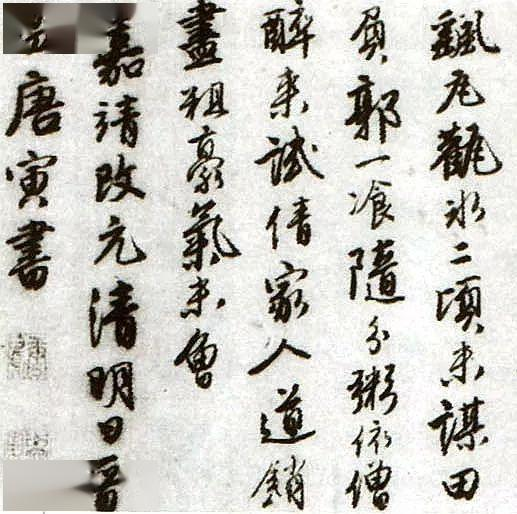 二頃未謀田
負郭一飡隨分粥依僧
醉來試倩家人道銷
盡粗豪氣未曾
嘉靖改元清明日晉
昌唐寅書